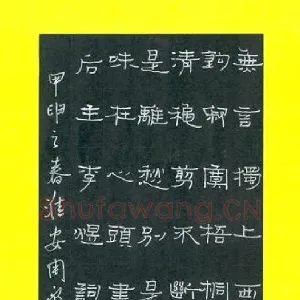 無言獨上西
鉤寂寞梧桐
清穐剪不斷
是離愁別是
味在心頭書
后主李煜詞
甲申之春淮安周
Shufawang.CN